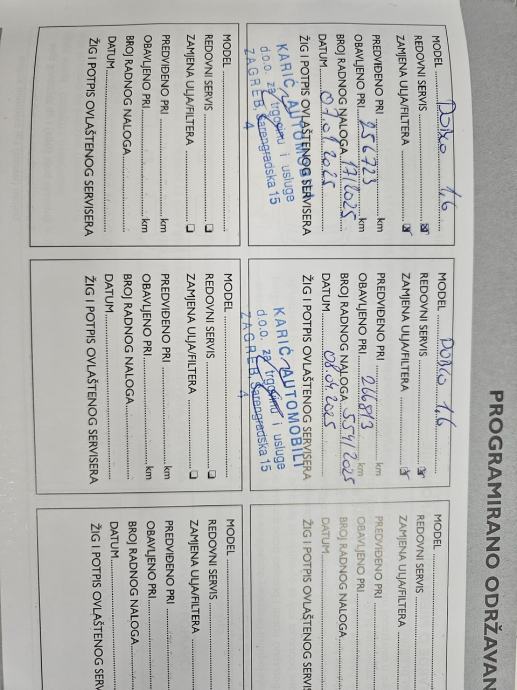 PROGRAMIRANO ODRŽAVAN
MODEL DOBLO 1,6
REDOVNI SERVIS
ZAMJENA ULJA/FILTERA
PREDVIĐENO PRI km
OBAVLJENO PRI 256723 km
BROJ RADNOG NALOGA 17/2025
DATUM 07.01.2025
ŽIG I POTPIS OVLAŠTENOG SERVISERA
KARIĆ AUTOMOBILI
d.o.o. za trgovinu i usluge
ZAGREB, Šarengradska 15
4
MODEL DOBLO 1,6
REDOVNI SERVIS
ZAMJENA ULJA/FILTERA
PREDVIĐENO PRI km
OBAVLJENO PRI 266813 km
BROJ RADNOG NALOGA 554/2025
DATUM 08.04.2025
ŽIG I POTPIS OVLAŠTENOG SERVISERA
KARIĆ AUTOMOBILI
d.o.o. za trgovinu i usluge
ZAGREB, Šarengradska 15
4
MODEL
REDOVNI SERVIS
ZAMJENA ULJA/FILTERA
PREDVIĐENO PRI
OBAVLJENO PRI
BROJ RADNOG NALOGA
DATUM
ŽIG I POTPIS OVLAŠTENOG SERVIS
MODEL
REDOVNI SERVIS
ZAMJENA ULJA/FILTERA
PREDVIĐENO PRI km
OBAVLJENO PRI km
BROJ RADNOG NALOGA
DATUM
ŽIG I POTPIS OVLAŠTENOG SERVISERA
MODEL
REDOVNI SERVIS
ZAMJENA ULJA/FILTERA
PREDVIĐENO PRI km
OBAVLJENO PRI km
BROJ RADNOG NALOGA
DATUM
ŽIG I POTPIS OVLAŠTENOG SERVISERA
MODEL
REDOVNI SERVIS
ZAMJENA ULJA/FILTERA
PREDVIĐENO PRI
OBAVLJENO PRI
BROJ RADNOG NALOGA
DATUM
ŽIG I POTPIS OVLAŠTENOG SERV